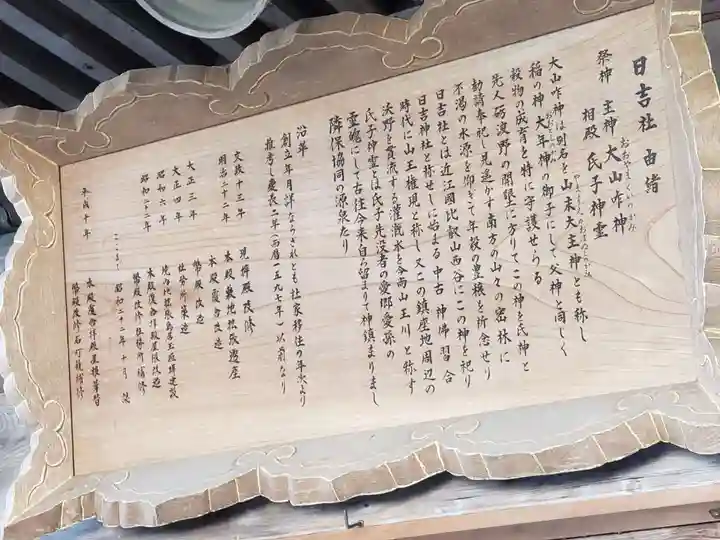 日吉社 由緒
祭神 主神 大山咋神
おおやまくいのかみ
相殿 氏子神霊
大山咋神は別名を山末大主神とも称し
やますえのおおぬしのかみ
稲の神 大年神の御子にして父神と同しく
おおとしのかみ
穀物の成育を特に守護せらる
先人砺波野の開墾に方りてこの神を氏神と
勧請奉祀し見遥かす南方の山々の密林に
不渇の水源を仰きて年穀の豊穣を祈念せり
日吉社とは近江国比叡山西谷にこの神を祀り
日吉神社と称せしに始まる 中古 神佛習合
時代に山王権現と称し又この鎮座地周辺の
沃野を貫流する灌漑水を今尚山王川と称す
氏子神霊とは氏子先没者の愛郷愛孫の
霊魂にして古往今来自ら留まりて神鎮まりまし
隣保協同の源泉たり
沿革
創立年月詳ならされとも社家移住の年次より
推考し慶長二年(西暦一五九七年)以前なり
文政十三年 現拝殿改修
明治二十二年 本殿敷地拡張遷座
本殿覆舎改造
大正三年 幣殿改造
大正四年 社務所築造
昭和六年 境内地拡張鳥居玉垣建設
昭和二十二年 本殿覆舎拝殿屋根改造
幣殿改修社務所補修
昭和二十二年十月
平成十年 本殿覆舎拝殿屋根葺替
幣殿改修石灯籠補修